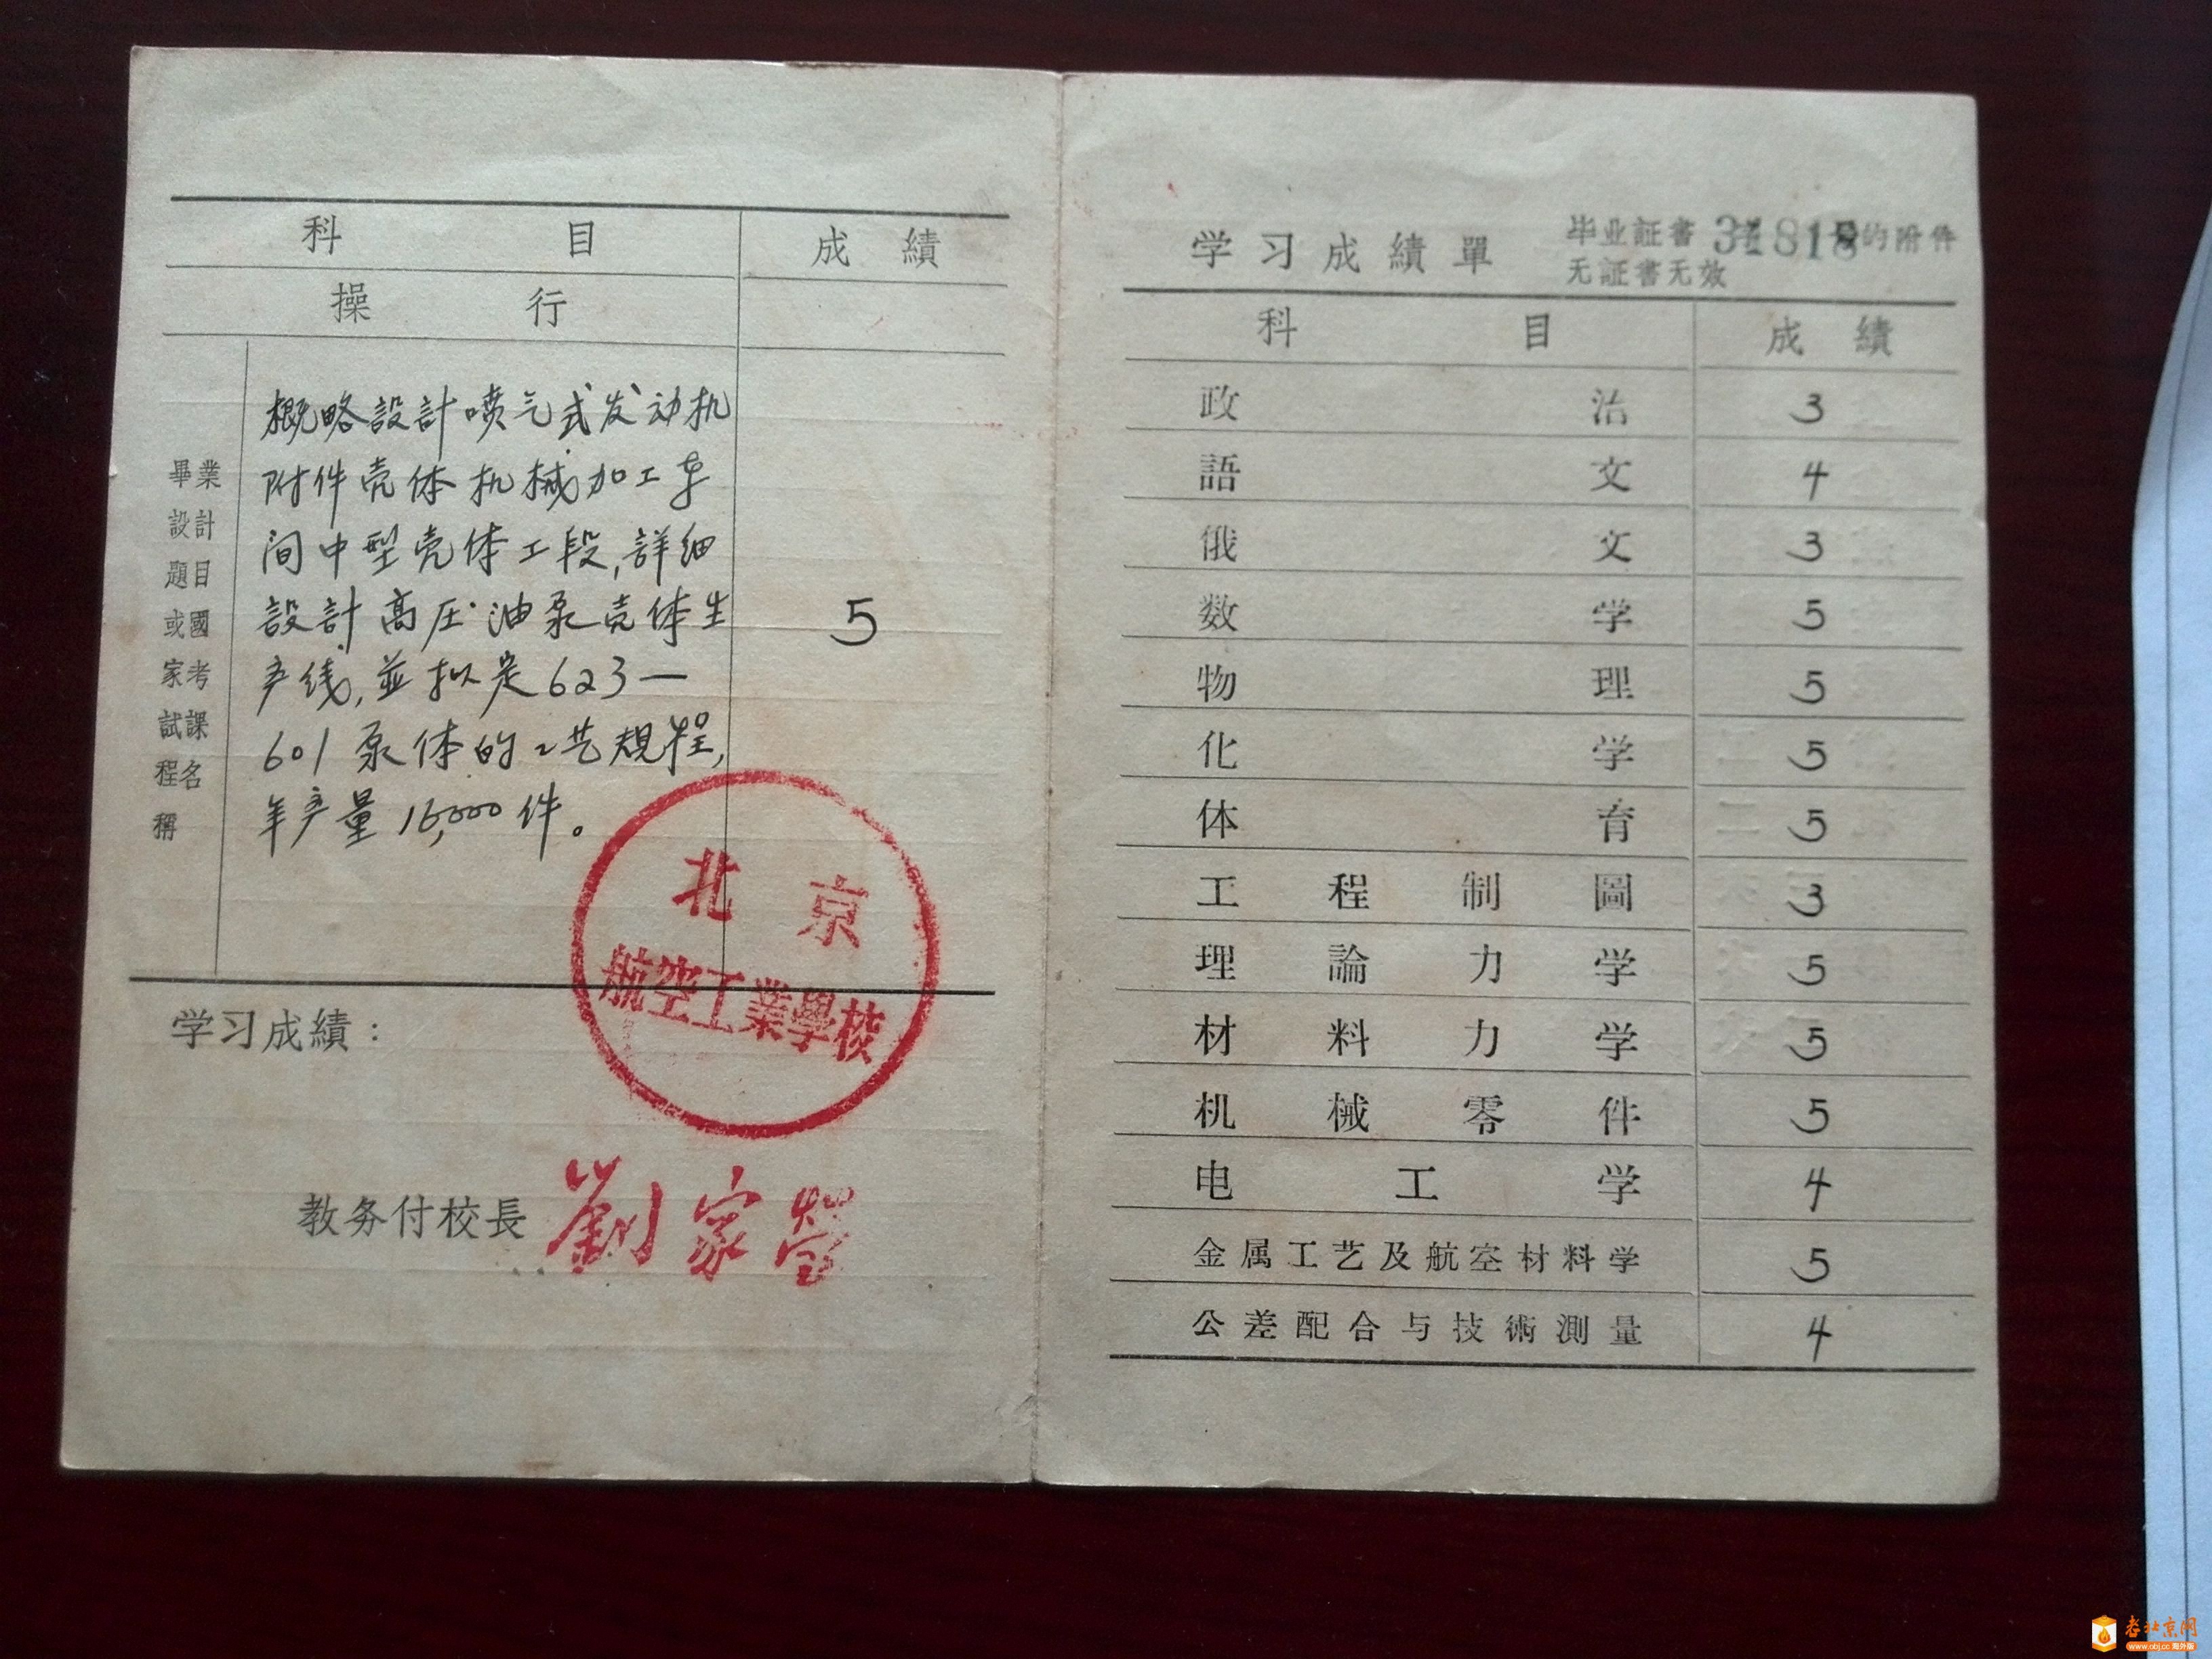 科 目 成 績
操 行
畢業
設計
題目
或國
家考
試課
程名
稱
概略設計喷气式发动机
附件壳体机械加工车
间中型壳体工段,詳细
設計高压油泵壳体生
产线,並拟定623—
601泵体的工艺規程,
年产量16,000件。
5
北京
航空工業學校
学习成績:
教务付校長 劉家
学习成績單
毕业証書 31818的附件
无証書无效
科 目 成 績
政治 3
語文 4
俄文 3
数学 5
物理 5
化学 5
体育 5
工程制圖 3
理論力学 5
材料力学 5
机械零件 5
电工学 4
金属工艺及航空材料学 5
公差配合与技術测量 4
老北京网
www.obj.cc 海外版